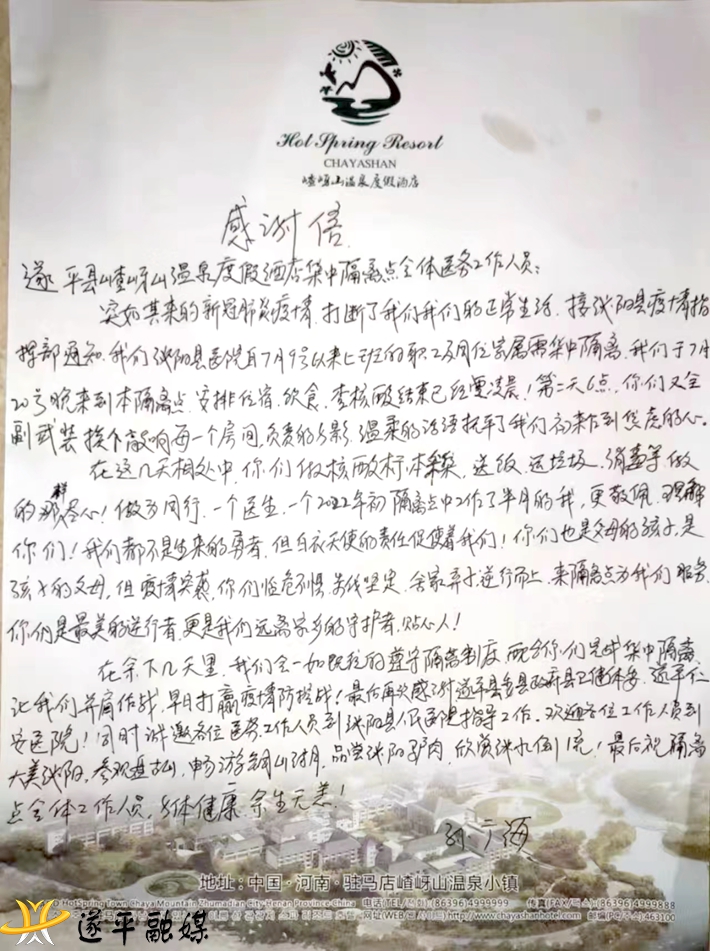 Hot Spring Resort
CHAYASHAN
嵖岈山温泉度假酒店
感谢信
遂平县嵖岈山温泉度假酒店集中隔离点全体医务工作人员:
突如其来的新冠肺炎疫情,打断了我们我们的正常生活,接泌阳县疫情指
挥部通知,我们泌阳县医院自7月9号以来上班的职工及同住家属需集中隔离,我们于7月
20号晚来到本隔离点,安排住宿、饮食、查核酸结束已经是凌晨!第二天6点,你们又全
副武装挨个敲响每一个房间,负责的身影,温柔的话语抚平了我们初来乍到焦虑的心。
在这几天相处中,你们做核酸标本采集,送饭,运垃圾,消毒等做
的那样尽心!做为同行,一个医生,一个2022年初隔离点中工作了半月的我,更敬佩,理解
你们!我们都不是生来的勇者,但白衣天使的责任促使着我们!你们也是父母的孩子,是
孩子的父母,但疫情突袭,你们临危不惧,
坚定,舍家弃子逆行而上,来隔离点为我们服务,
你们是最美的逆行者,更是我们远离家乡的守护者,贴心人!
在余下几天里,我们会一如既往的遵守隔离制度,配合你们完成集中隔离,
让我们并肩作战,早日打赢疫情防控战!最后再次感谢遂平县
县政府县卫健体委,遂平仁
安医院!同时诚邀各位医务工作人员到泌阳县人民医院指导工作。欢迎各位工作人员到
大美泌阳,参观盘古山,畅游铜山湖,品尝泌阳驴肉,欣赏泌水倒流!最后祝隔离
点全体工作人员,身体健康,余生无恙!
地址:中国·河南·驻马店嵖岈山温泉小镇
HotSpring Town Chaya Mountain Zhumadian City Henan Province China 电话(TEL/전화):(86396)4999999 传真(FAX/팩스):(86396)4999888
网址(WEB/웹 사이트)http://www.chayashanhotel.com 邮编(P.C/주소)463100
遂平融媒